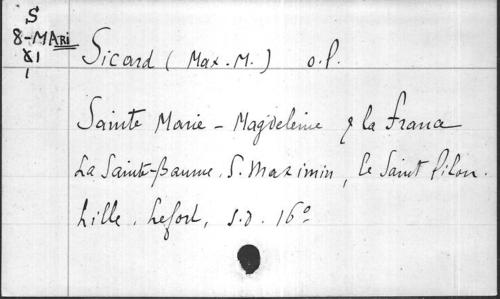 S
8-MAri
81
1
Sicard (Max.-M.) o.p.
Sainte Marie-Magdeleine & la France
La Sainte-Baume, S. Maximin, le Saint Pilon.
Lille, Lefort, s.d. 16°